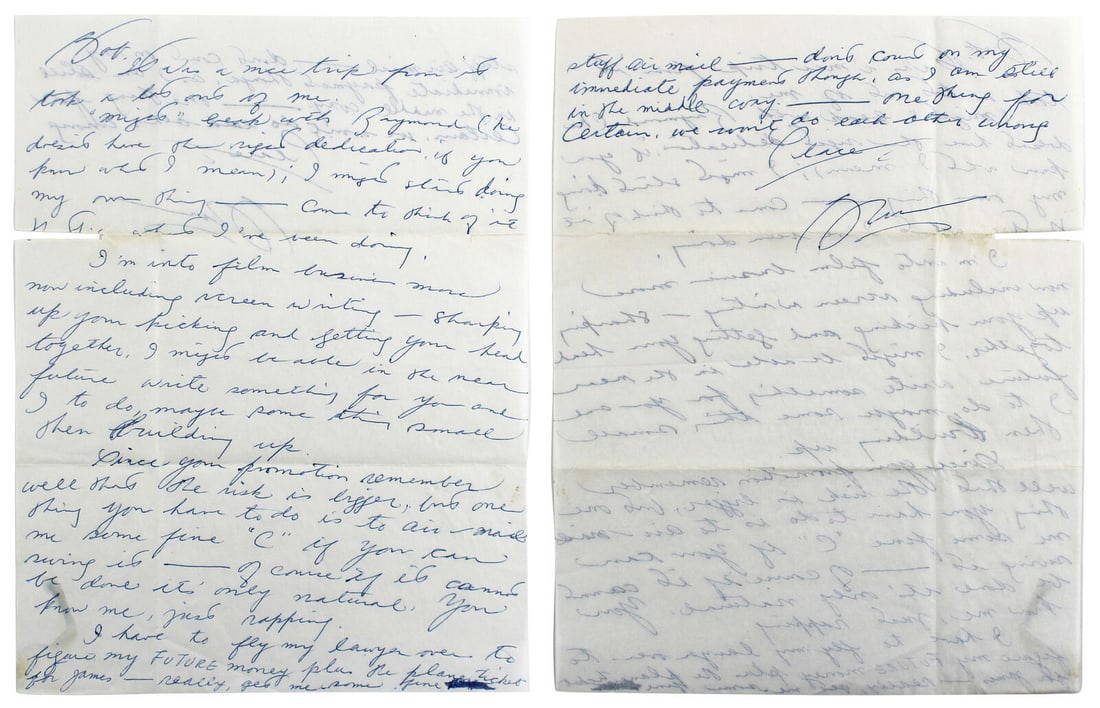 Bob,
It was a nice trip from it
took a lot out of me
"might" break with Raymond (he
doesn't have the right dedication, if you
know what I mean); I might start doing
my own thing — Come to think of it
what I've been doing
I'm into film business more
now including screen writing — sharping
up your kicking and getting your head
together. I might be able in the near
future write something for you and
I to do, maybe some thing small
then Building up.
Since your promotion remember
well that the risk is bigger, but one
thing you have to do is to air mail
me some fine "C" if you can
swing it — of course if it cannot
be done it's only natural. You
know me, just rapping.
I have to fly my lawyer over to
figure my FUTURE money plus the plane ticket
for James — really, get me some fine
stuff air mail — don't count on my
immediate payment though, as I am still
in the middle way — one thing for
Certain, we won't do each other wrong
Peace